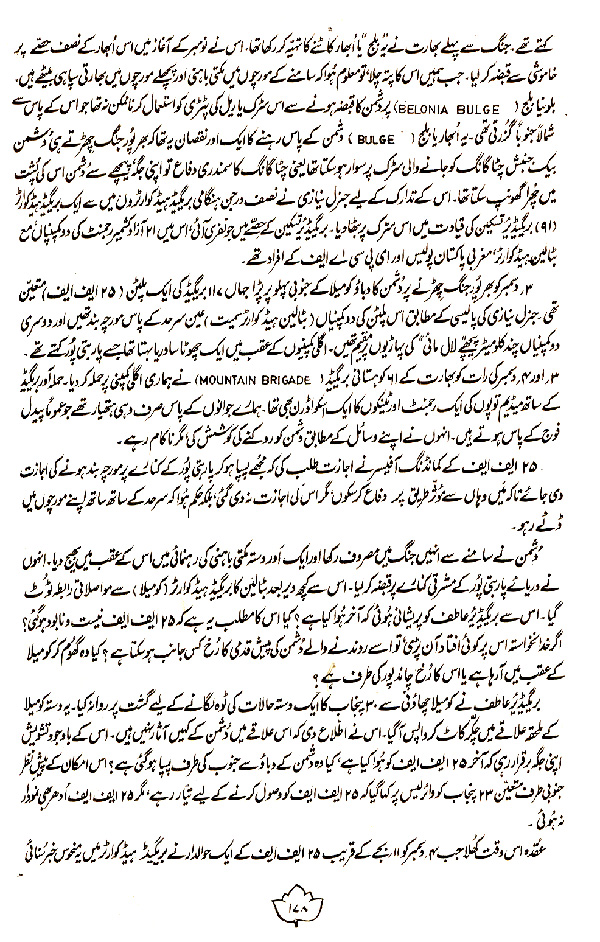 کہتے تھے۔ جنگ سے پہلے بھارت نے یہ بلج یا اُبھار کاٹنے کا تہیہ کر رکھا تھا۔ اس نے نومبر کے آغاز میں اس اُبھار کے نصف حصے پر
خاموشی سے قبضہ کر لیا۔ جب ہمیں اس کا پتہ چلا تو معلوم ہُوا کہ سامنے کے مورچوں میں مکتی باہنی اور پچھلے مورچوں میں بھارتی سپاہی بیٹھے ہیں۔
بلونیا بلج (BELONIA BULGE) پر دشمن کا قبضہ ہونے سے اس سڑک یا ریل کی پٹڑی کو استعمال کرنا ممکن نہ تھا جو اس کے پاس سے
شمالاً جنوباً گزرتی تھی۔ یہ اُبھار یا بلج (BULGE) دشمن کے پاس رہنے کا ایک اور نقصان یہ تھا کہ بھرپور جنگ چھڑتے ہی دشمن
بیک جنبش چٹا گانگ کو جانے والی سڑک پر سوار ہو سکتا تھا یعنی چٹا گانگ کا سمندری دفاع تو اپنی جگہ پیچھے سے دُشمن اس کی پُشت
میں چھرا گھونپ سکتا تھا۔ اس کے تدارک کے لیے جنرل نیازی نے نصف درجن ہنگامی بریگیڈ ہیڈ کوارٹروں میں سے ایک بریگیڈ ہیڈ کوارٹر
(۹۱) بریگیڈیر تسکین کی قیادت میں اس سڑک پر بٹھا دیا۔ بریگیڈیر تسکین کے حصے میں جو نفری آئی اس میں ۲۱ آزاد کشمیر رجمنٹ کی دو کمپنیاں مع
بٹالین ہیڈ کوارٹر، مغربی پاکستان پولیس اور ای پی سی اے ایف کے افراد تھے۔
۳۔ دسمبر کو بھرپور جنگ چھڑنے پر دُشمن کا دباؤ کومیلا کے جنوبی پہلو پر پڑا جہاں ۱۱۷ بریگیڈ کی ایک پلٹن (۲۵ ایف ایف) متعین
تھی۔ جنرل نیازی کی پالیسی کے مطابق اس پلٹن کی دو کمپنیاں (بٹالین ہیڈ کوارٹر سمیت) عین سرحد کے پاس مورچہ بند تھیں اور دوسری
دو کمپنیاں چند کلومیٹر پیچھے لال مائی کی پہاڑیوں پر مقیم تھیں۔ اگلی کمپنیوں کے عقب میں ایک چھوٹا سا دریا بہتا تھا جسے پاربتی پُور کہتے تھے۔
۳۔ اور ۴۔ دسمبر کی رات کو بھارت کے ۶۱ کوہستانی بریگیڈ (MOUNTAIN BRIGADE) نے ہماری اگلی کمپنی پر حملہ کر دیا۔ حملہ آور بریگیڈ
کے ساتھ میڈیم توپوں کی ایک رجمنٹ اور ٹینکوں کا ایک سکواڈرن بھی تھا۔ ہمارے جوانوں کے پاس صرف وہی ہتھیار تھے جو عموماً پیدل
فوج کے پاس ہوتے ہیں۔ انہوں نے اپنے وسائل کے مطابق دشمن کو روکنے کی کوشش کی مگر ناکام رہے۔
۲۵ ایف ایف کے کمانڈنگ آفیسر نے اجازت طلب کی کہ مجھے پسپا ہو کر پاربتی پُور کے کنارے پر مورچہ بند ہونے کی اجازت
دی جائے تاکہ میں وہاں سے مؤثر طریق پر دفاع کر سکوں مگر اس کی اجازت نہ دی گئی، بلکہ حکم ہُوا کہ سرحد کے ساتھ ساتھ اپنے مورچوں میں
ڈٹے رہو۔
دُشمن نے سامنے سے انہیں جنگ میں مصروف رکھا اور ایک اور دستہ مکتی باہنی کی رہنمائی میں اس کے عقب میں بھیج دیا۔ انہوں
نے دریائے پاربتی پُور کے مشرقی کنارے پر قبضہ کر لیا۔ اس سے کچھ دیر بعد بٹالین کا بریگیڈ ہیڈ کوارٹر (کومیلا) سے مواصلاتی رابطہ ٹوٹ
گیا۔ اس سے بریگیڈیر عاطف کو پریشانی ہُوئی کہ آخر ہُوا کیا ہے؟ کیا اس کا مطلب یہ ہے کہ ۲۵ ایف ایف نیست و نابود ہو گئی؟
اگر خدانخواستہ اس پر کوئی اُفتاد آن پڑی تو اسے روندنے والے دُشمن کی پیش قدمی کا رُخ کس جانب ہو سکتا ہے؟ کیا وہ گھُوم کر کومیلا
کے عقب میں آ رہا ہے یا اس کا رُخ چاند پور کی طرف ہے؟
بریگیڈیر عاطف نے کومیلا چھاؤنی سے ۳۰ پنجاب کا ایک دستہ حالات کی ٹوہ لگانے کے لیے گشت پر روانہ کیا۔ یہ دستہ کومیلا
کے ملحقہ علاقے میں چکر کاٹ کر واپس آ گیا۔ اس نے اطلاع دی کہ اس علاقے میں دُشمن کے کہیں آثار نہیں ہیں۔ اس کے باوجود تشویش
اپنی جگہ برقرار رہی کہ آخر ۲۵ ایف ایف کو ہُوا کیا ہے، کیا وہ دشمن کے دباؤ سے جنوب کی طرف پسپا ہو گئی ہے؟ اس امکان کے پیش نظر
جنوبی طرف متعین ۲۳ پنجاب کو وائرلیس پر کہا گیا کہ ۲۵ ایف ایف کو وصول کرنے کے لیے تیار رہے، مگر ۲۵ ایف ایف اُدھر بھی نمودار
نہ ہوئی۔
عقدہ اس وقت کھُلا جب ۴۔ دسمبر کو ۱۱ بجے کے قریب ۲۵ ایف ایف کے ایک حوالدار نے بریگیڈ ہیڈ کوارٹر میں یہ منحوس خبر سُنائی
۱۷۸